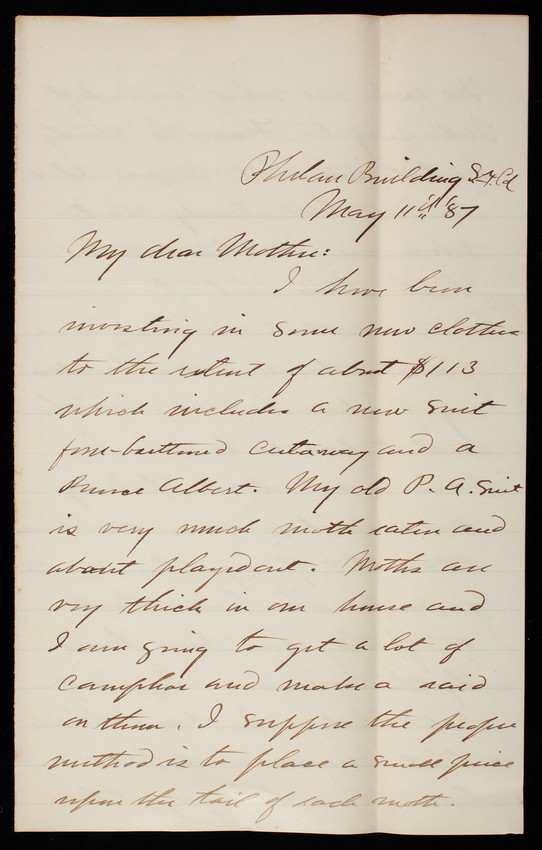 Phelan Building S.F. Cal
May 11th '87
My dear Mother:
I have been
investing in some new clothes
to the extent of about $113
which includes a new suit
four-buttoned cutaway and a
Prince Albert. My old P. A. suit
is very much moth eaten and
about played out. Moths are
very thick in our house and
I am going to get a lot of
camphor and make a raid
on them. I suppose the proper
method is to place a small piece
upon the tail of each moth.